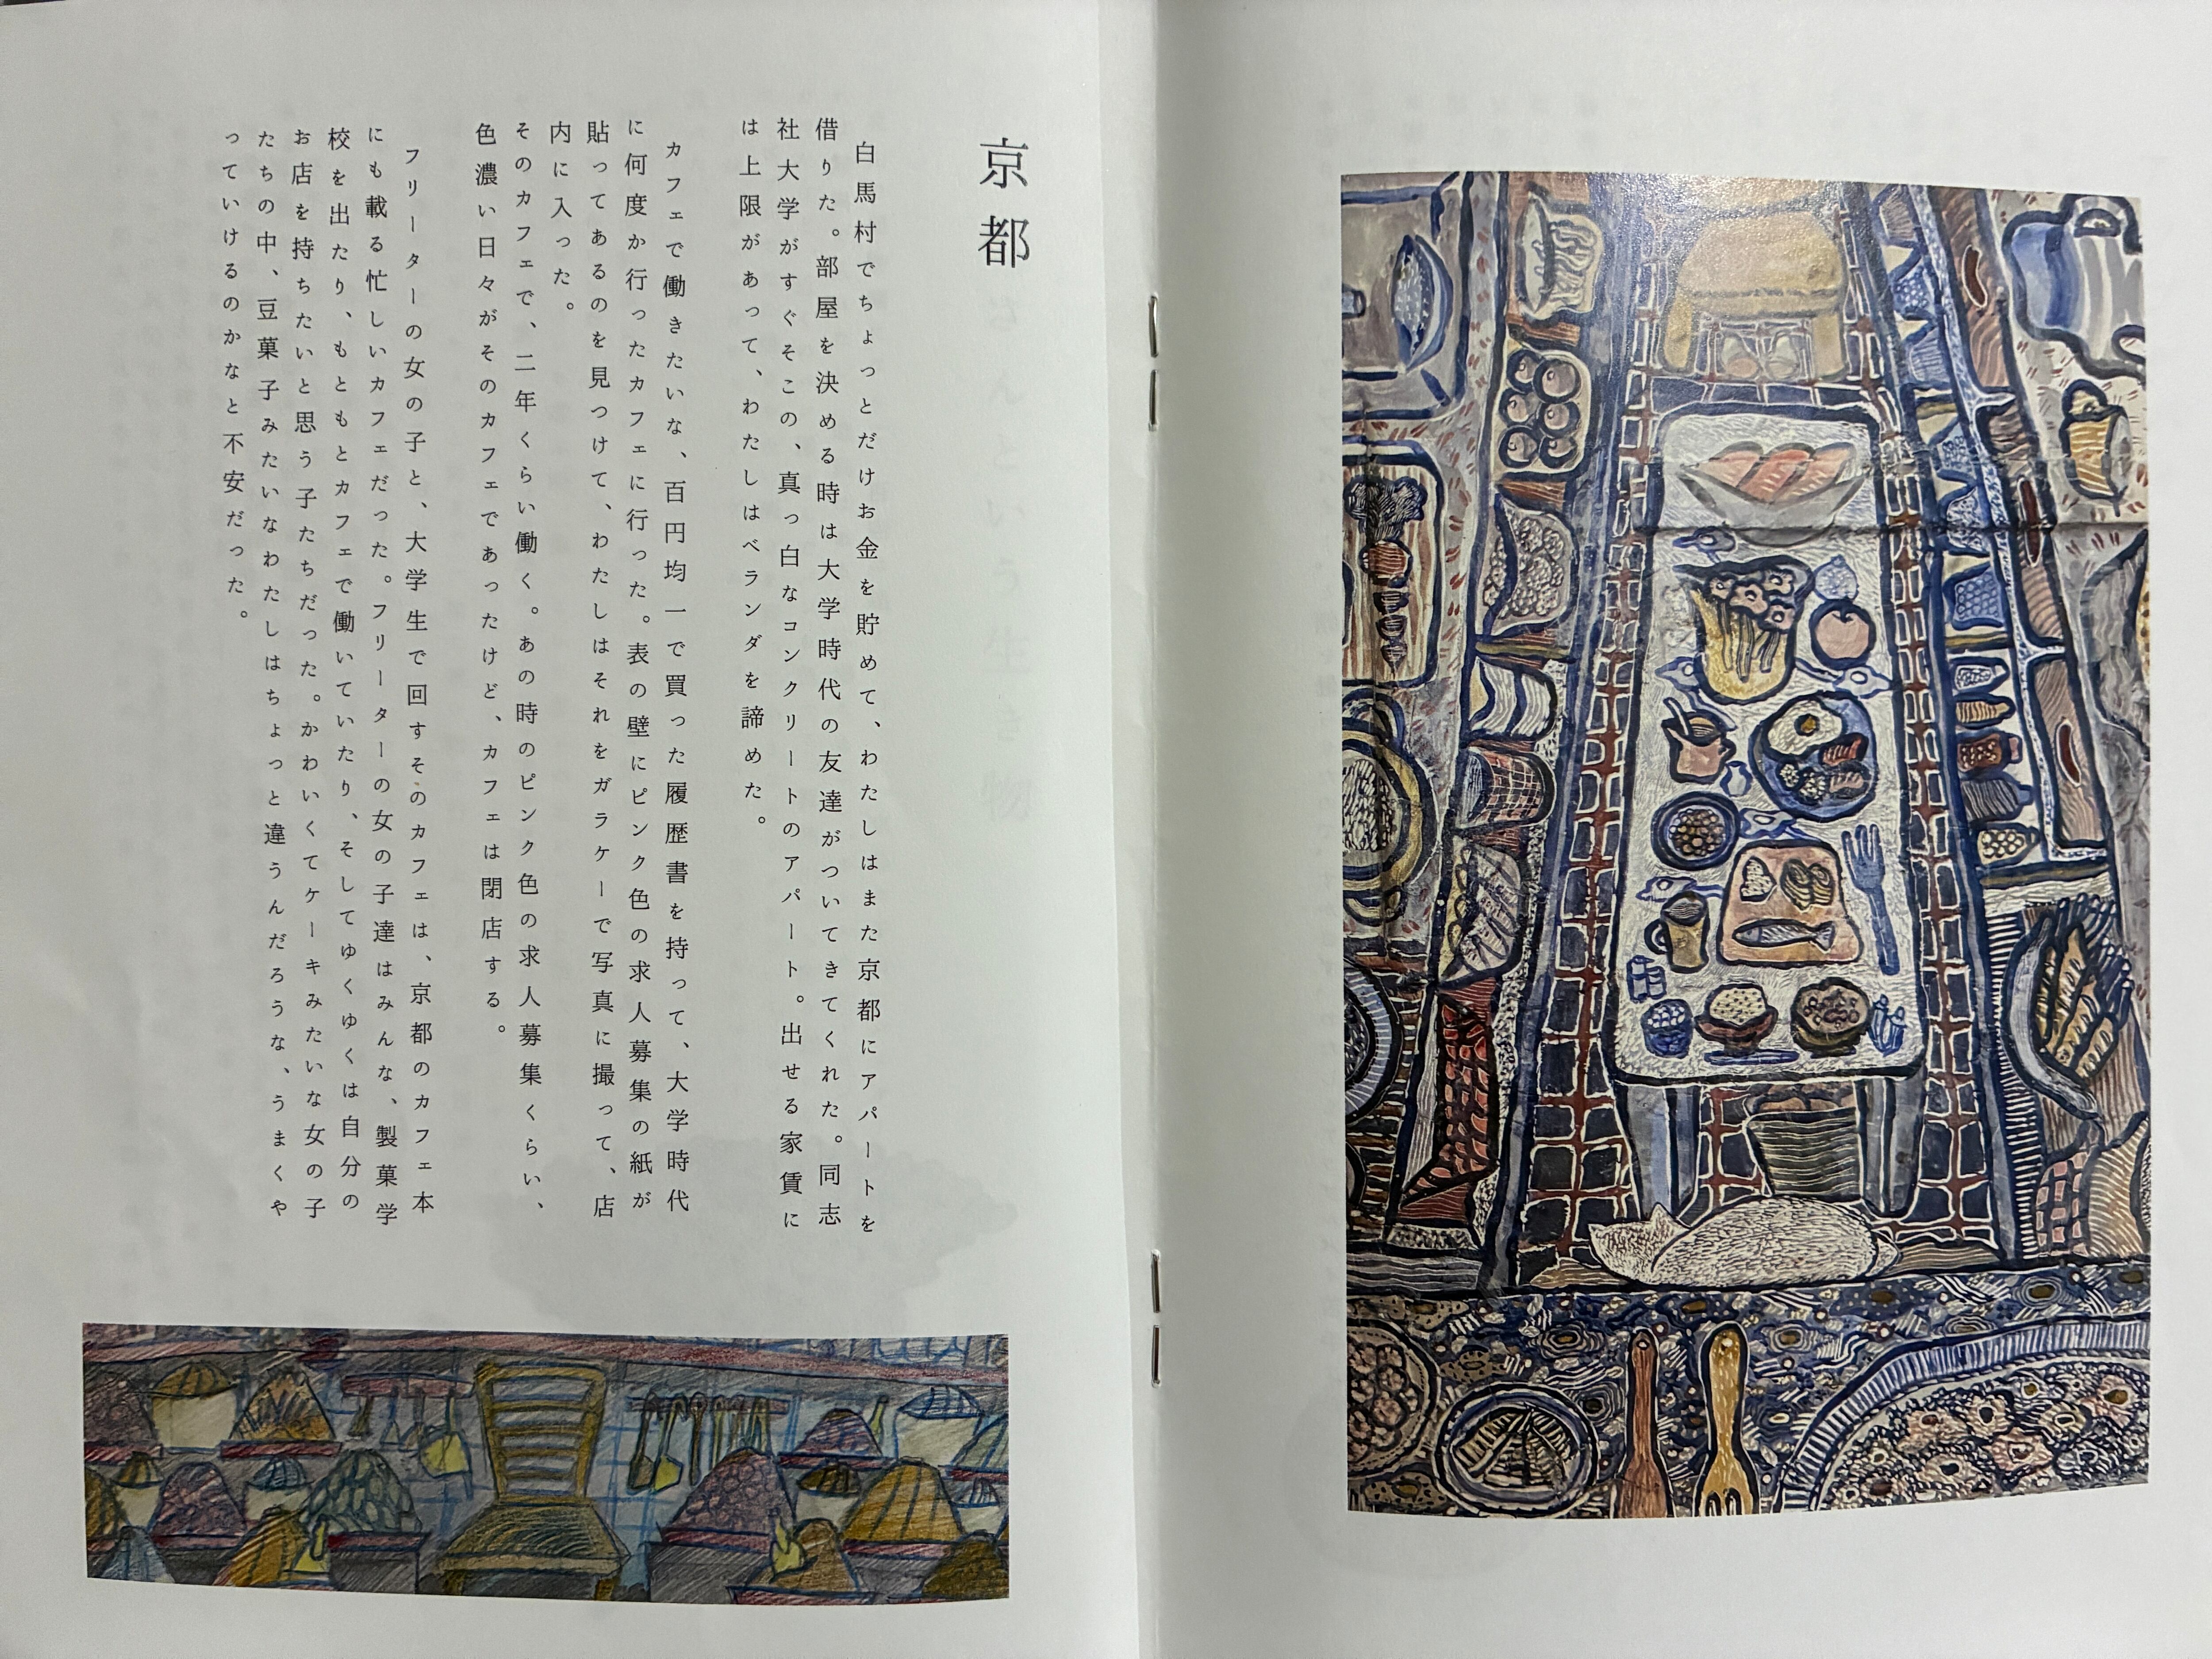 京都
白馬村でちょっとだけお金を貯めて、わたしはまた京都にアパートを
借りた。部屋を決める時は大学時代の友達がついてきてくれた。同志
社大学がすぐそこの、真っ白なコンクリートのアパート。出せる家賃に
は上限があって、わたしはベランダを諦めた。
カフェで働きたいな、百円均一で買った履歴書を持って、大学時代
に何度か行ったカフェに行った。表の壁にピンク色の求人募集の紙が
貼ってあるのを見つけて、わたしはそれをガラケーで写真に撮って、店
内に入った。
そのカフェで、二年くらい働く。あの時のピンク色の求人募集くらい、
色濃い日々がそのカフェであったけど、カフェは閉店する。
フリーターの女の子と、大学生で回すそのカフェは、京都のカフェ本
にも載る忙しいカフェだった。フリーターの女の子達はみんな、製菓学
校を出たり、もともとカフェで働いていたり、そしてゆくゆくは自分の
お店を持ちたいと思う子たちだった。かわいくてケーキみたいな女の子
たちの中、豆菓子みたいなわたしはちょっと違うんだろうな、うまくや
っていけるのかなと不安だった。